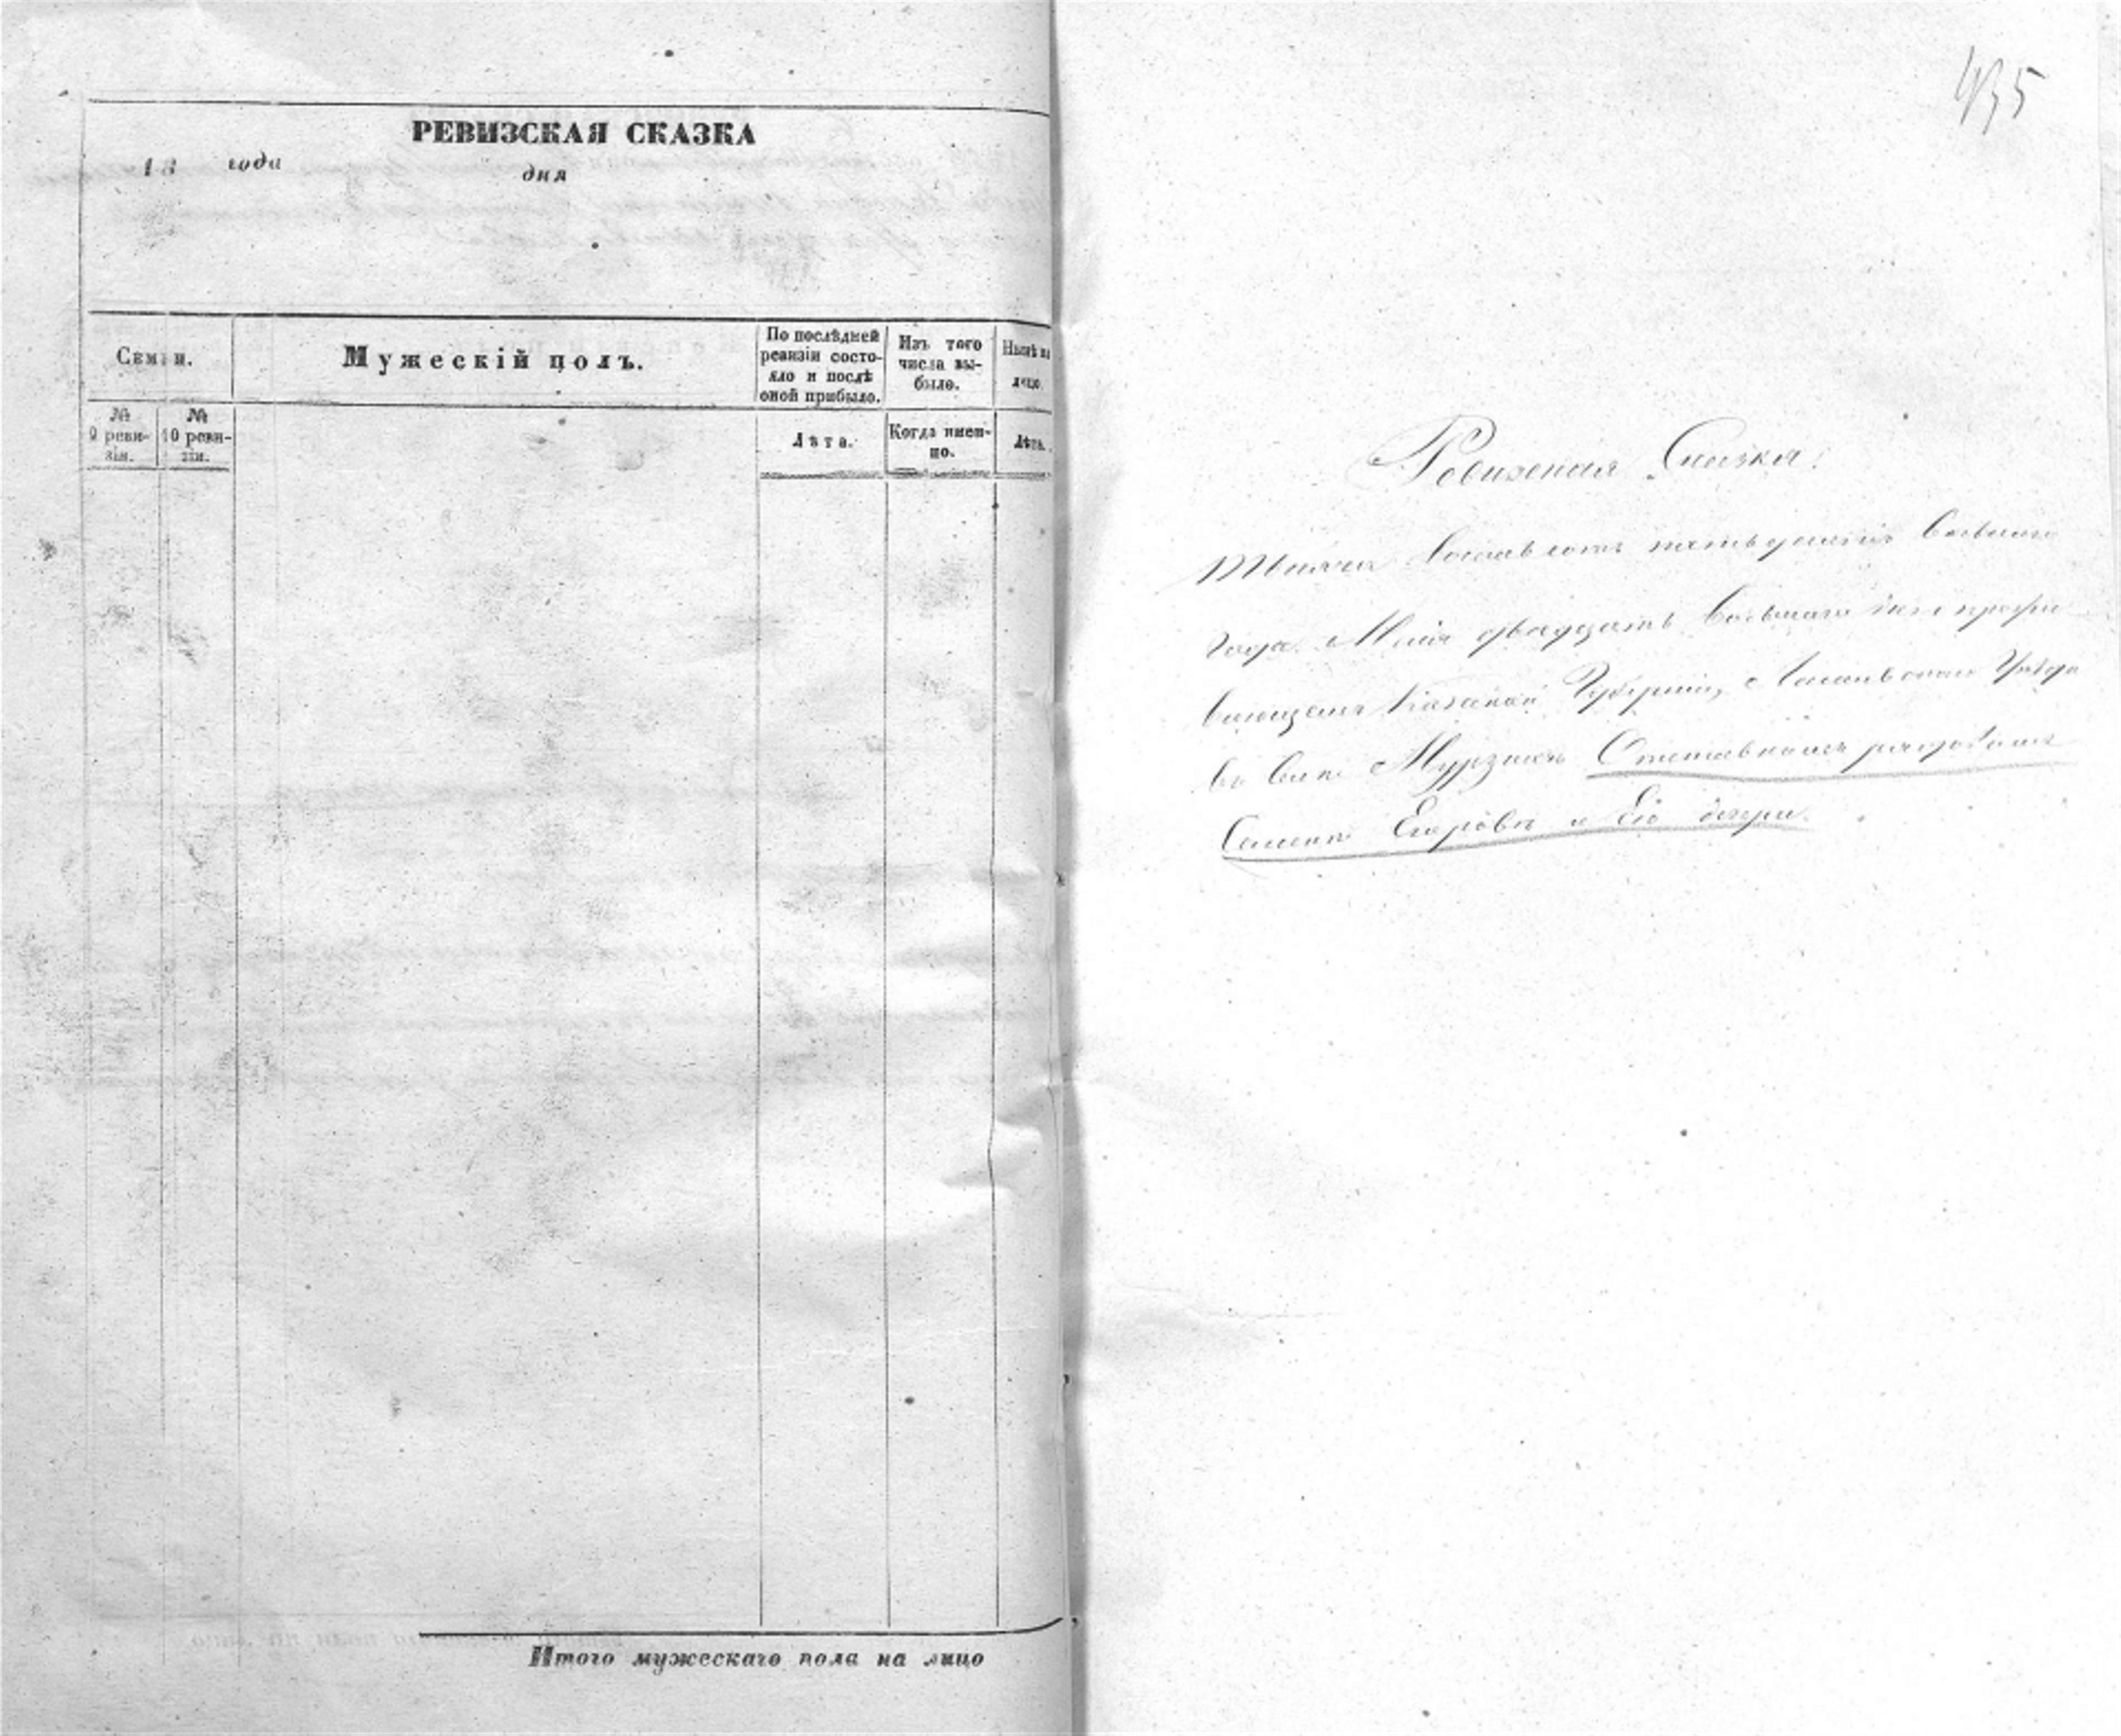 РЕВИЗСКАЯ СКАЗКА
18 года
дня
Семьи.
Мужескій полъ.
По послѣдней ревизіи состо-
яло и послѣ
оной прибыло.
Изъ того
числа вы-
было.
Нынѣ на
лицо.
№
9 реви-
зіи.
№
10 реви-
зіи.
Лѣта.
Когда имен-
но.
Лѣта.
Итого мужескаго пола на лицо
435
Ревизская Сказка.
Тысяча восемьсотъ пятьдесятъ восьмаго
года Мая двадцать восьмаго дня прожи
вающемъ Казанской Губерніи, Лаишевскаго Уѣзда
въ селѣ Мурзихѣ Отставномъ рядовомъ
Семенѣ Егоровѣ и Его дочери.